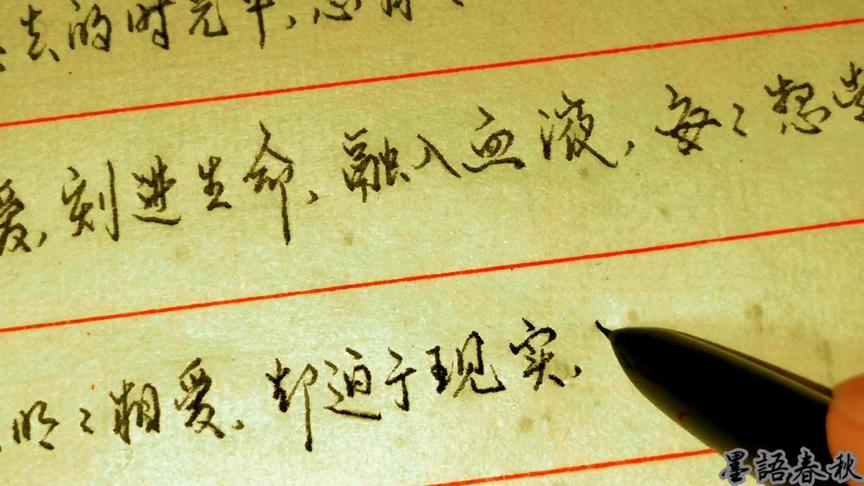 去的时光中,总有
爱,刻进生命,融入血液,每々想些
明々相爱,却迫于现实,
墨語春秋